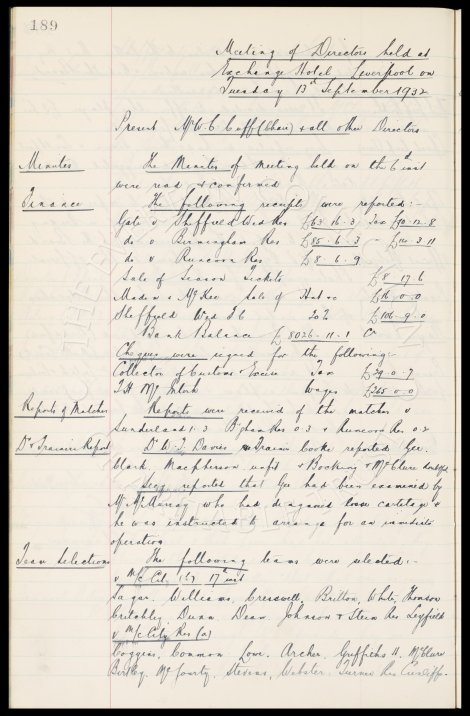 189
Meeting of Directors held at
Exchange Hotel, Liverpool on
Tuesday 13th September 1932
Present Mr W.C. Cuff (Chair) & all other Directors
Minutes The Minutes of Meeting held on the 6th inst
were read & confirmed
Finance The following receipts were reported:-
Gate v Sheffield Wed Res £63.16.3 Tax £10.12.8
do v Birmingham Res £85.6.3 - £14.3.11
do v Runcorn Res £8.6.9
Sale of Season Tickets £8.17.6
Made & McKee Sale of £16.0.0
Sheffield Wed F C £106.9.0
Bank Balance £8026.11.1 Cr
Cheques were signed for the following:-
Collector of Customs & Excise Tax £39.0.7
T.H. McIntosh Wages £265.0.0
Reports of Matches Reports were received of the matches v
Sunderland 1.3 B'gham Res 0.3 & Runcorn Res 0.2
Dr & Trainers Report Dr W.J. Davies & Trainer Cooke reported Gee
Clark, Macpherson unfit & Bocking & McClure
Legg reported that Gee had been examined by
Mr McMurray who had diagnosed loose cartilage &
he was instructed to arrange for an immediate
operation
Team Selections The following teams were selected:-
v M/c City 17th inst
Sagar, Williams, Cresswell, Britton, White, Thomson
Critchley, Dunn, Dean, Johnson & Stein Res
v M/c City Res (a)
Coggins, Common, Lowe, Archer, Griffiths H. McClure
Birtley, McGourty, Stevens, Webster, Turner Res Cunliffe